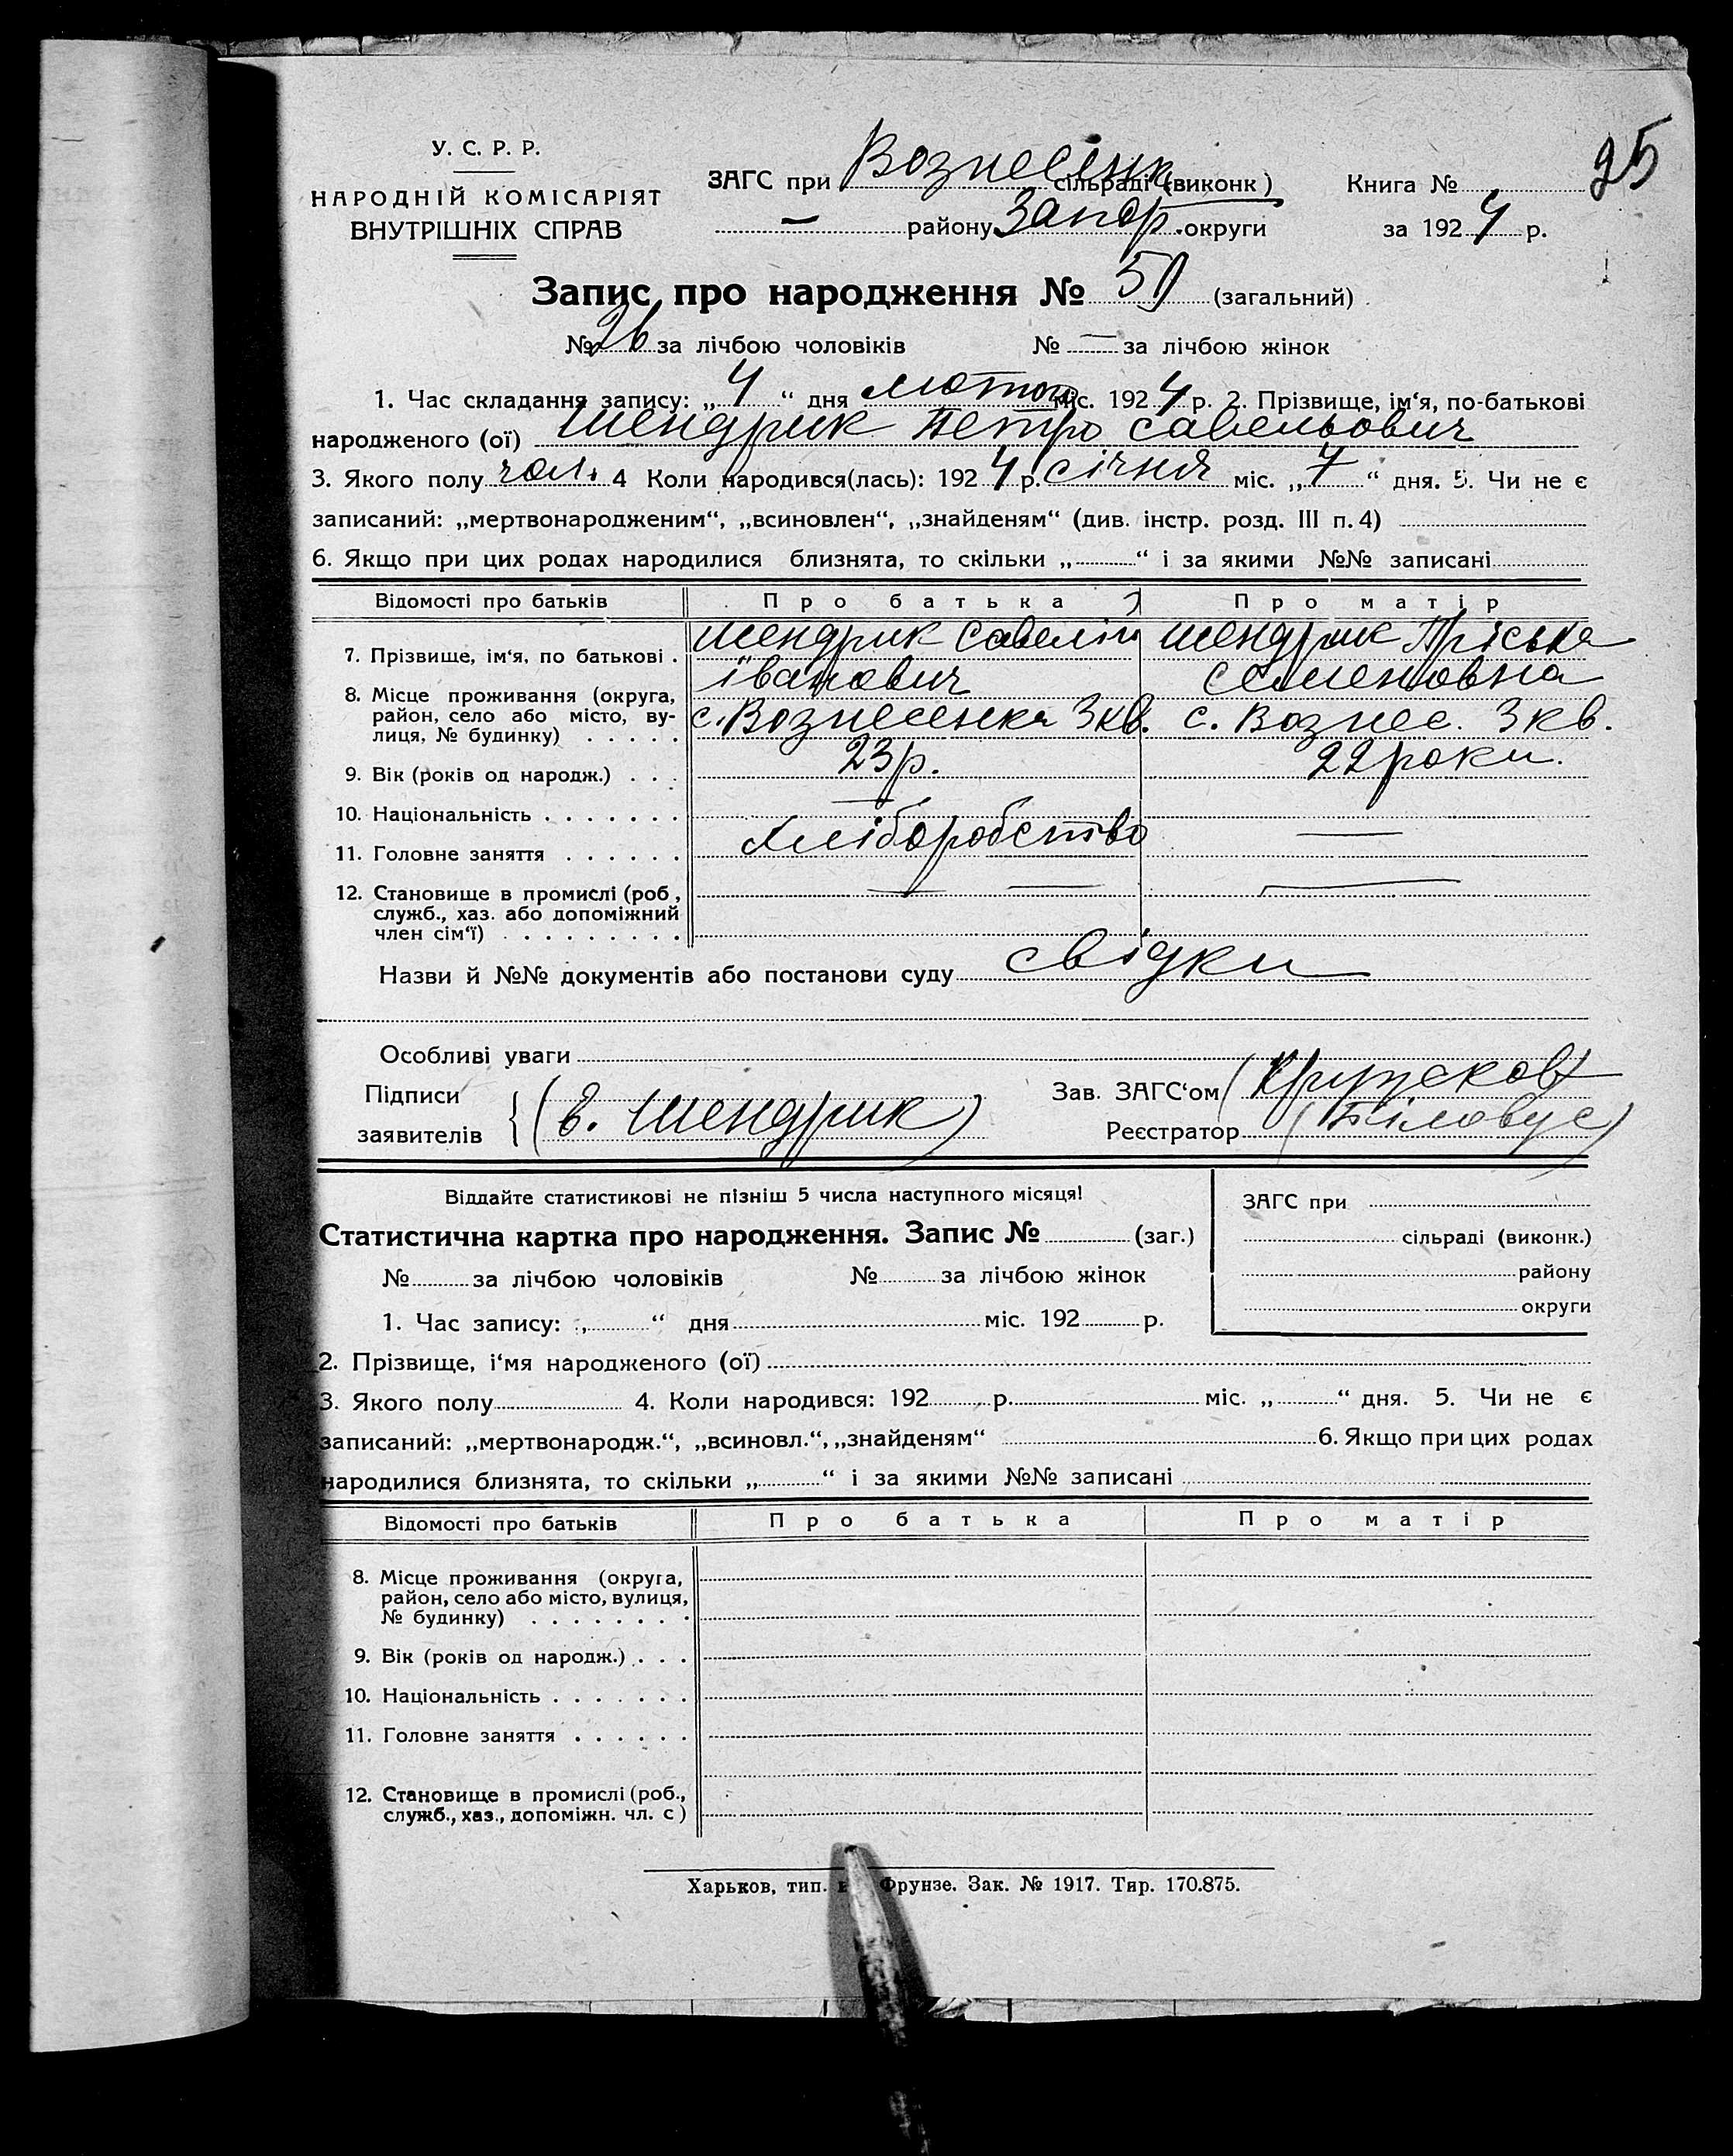 25
У. С. Р. Р.
НАРОДНІЙ КОМІСАРІЯТ
ВНУТРІШНІХ СПРАВ
ЗАГС при Вознесенк сільраді (виконк)
— району Запор. округи
Книга №
за 1924 р.
Запис про народження № 50 (загальний)
№ 26 за лічбою чоловіків № — за лічбою жінок
1. Час складання запису: „ 4 “ дня лютого міс. 1924 р. 2. Прізвище, ім‘я, по-батькові
народженого (ої) Шендрик Петро Савельович
3. Якого полу чол. 4 Коли народився(лась): 1924 р. січня міс. „ 7 “ дня. 5. Чи не є
записаний: „мертвонародженим“, „всиновлен“, „знайденям“ (див. інстр. розд. III п. 4)
6. Якщо при цих родах народилися близнята, то скільки „ “ і за якими №№ записані
Відомості про батьків Про батька Про матір
7. Прізвище, ім‘я, по батькові . Шендрик Савелій Іванович Шендрик Пріська Семеновна
8. Місце проживання (округа, район, село або місто, вулиця, № будинку) . . . . . с. Вознесенка 3 кв. с. Вознес. 3 кв.
9. Вік (років од народж.) . . . 23 р. 22 роки.
10. Національність . . . . . . . — —
11. Головне заняття . . . . . . Хліборобство
12. Становище в промислі (роб, служб., хаз. або допоміжний член сім‘ї) . . . . . . . . . — — —
Назви й №№ документів або постанови суду свідки
Особливі уваги
Підписи
заявителів (в. Шендрик)
Зав. ЗАГС‘ом
Реєстратор (Біловус)
Віддайте статистикові не пізніш 5 числа наступного місяця!
Статистична картка про народження. Запис № (заг.)
№ за лічбою чоловіків № за лічбою жінок
1. Час запису: „ “ дня міс. 192 р.
ЗАГС при
сільраді (виконк.)
району
округи
2. Прізвище, і‘мя народженого (ої)
3. Якого полу 4. Коли народився: 192 р. міс. „ “ дня. 5. Чи не є
записаний: „мертвонародж.“, „всиновл.“, „знайденям“ 6. Якщо при цих родах
народилися близнята, то скільки „ “ і за якими №№ записані
Відомості про батьків Про батька Про матір
8. Місце проживання (округа,
район, село або місто, вулиця,
№ будинку) . . . . . . . .
9. Вік (років од народж.) . . .
10. Національність . . . . . . .
11. Головне заняття . . . . . .
12. Становище в промислі (роб.,
служб., хаз., допоміжн. чл. с)
Харьков, тип. Фрунзе. Зак. № 1917. Тир. 170.875.